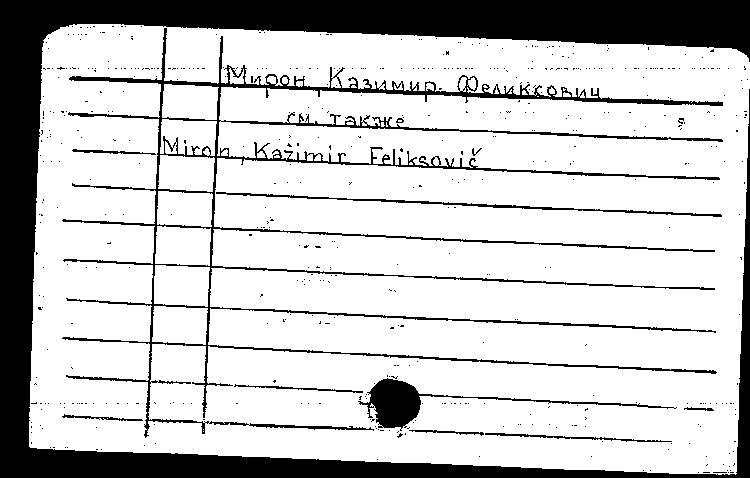 Мирон, Казимир Феликсович
см. также
Miron, Kažimir Feliksovič